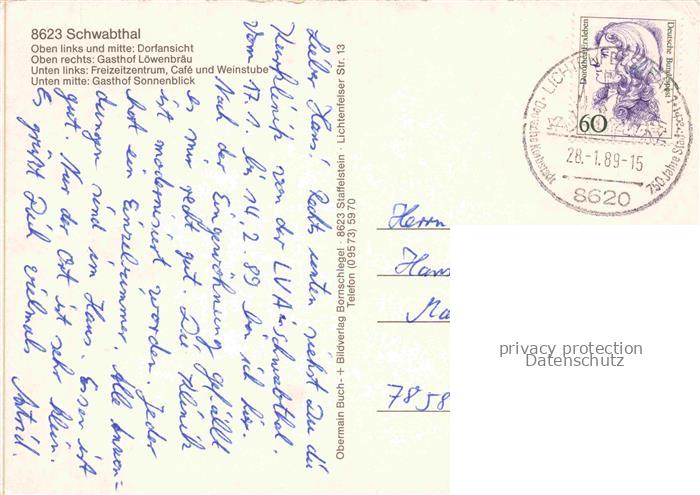 8623 Schwabthal
Oben links und mitte: Dorfansicht
Oben rechts: Gasthof Löwenbräu
Unten links: Freizeitzentrum, Café und Weinstube
Unten mitte: Gasthof Sonnenblick
Lieber Hans! Rechts unten siehst Du die
Kurzklinik von der LVA in Schwabthal.
Vom 17.1. bis 14.2.89 bin ich hier.
Nach der Eingewöhnung gefällt
es mir recht gut. Die Klinik
ist modernisiert worden. Jeder
hat ein Einzelzimmer. Alle Anwen=
dungen sind im Haus. Essen ist
gut. Nur der Ort ist sehr klein.
Es grüßt Dich vielmals Astrid.
Obermain Buch- + Bildverlag Bornschlegel · 8623 Staffelstein · Lichtenfelser Str. 13
Telefon (0 95 73) 59 70
Deutsche Bundespost
Dorothea Erxleben
60
LICHTENFELS
Deutsche Korbstadt
750 Jahre Stadt
28.-1.89-15
8620
Herrn
Hans
Ma
7858
privacy protection
Datenschutz